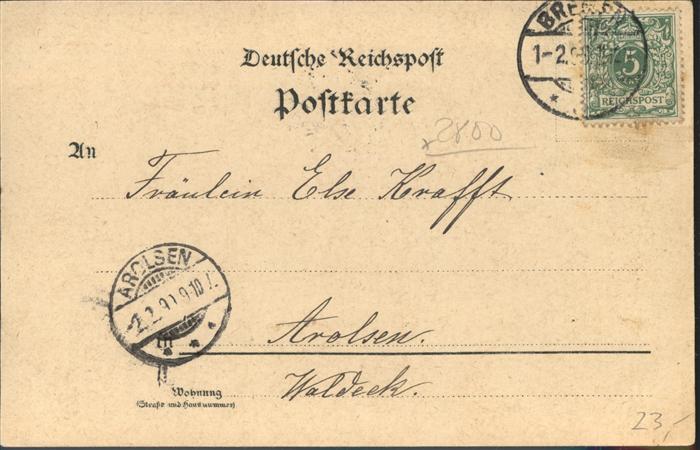 Deutsche Reichspost
Postkarte
BREMEN
5
REICHSPOST
2800
An
Fräulein Else Krafft
AROLSEN
Arolsen.
Waldeck.
Wohnung
(Straße und Hausnummer)
23,-